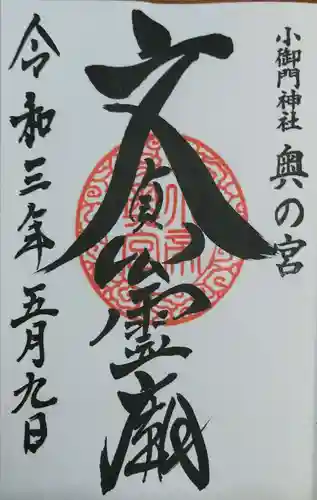 小御門神社 奥の宮
文貞公霊廟
令和三年 五月九日